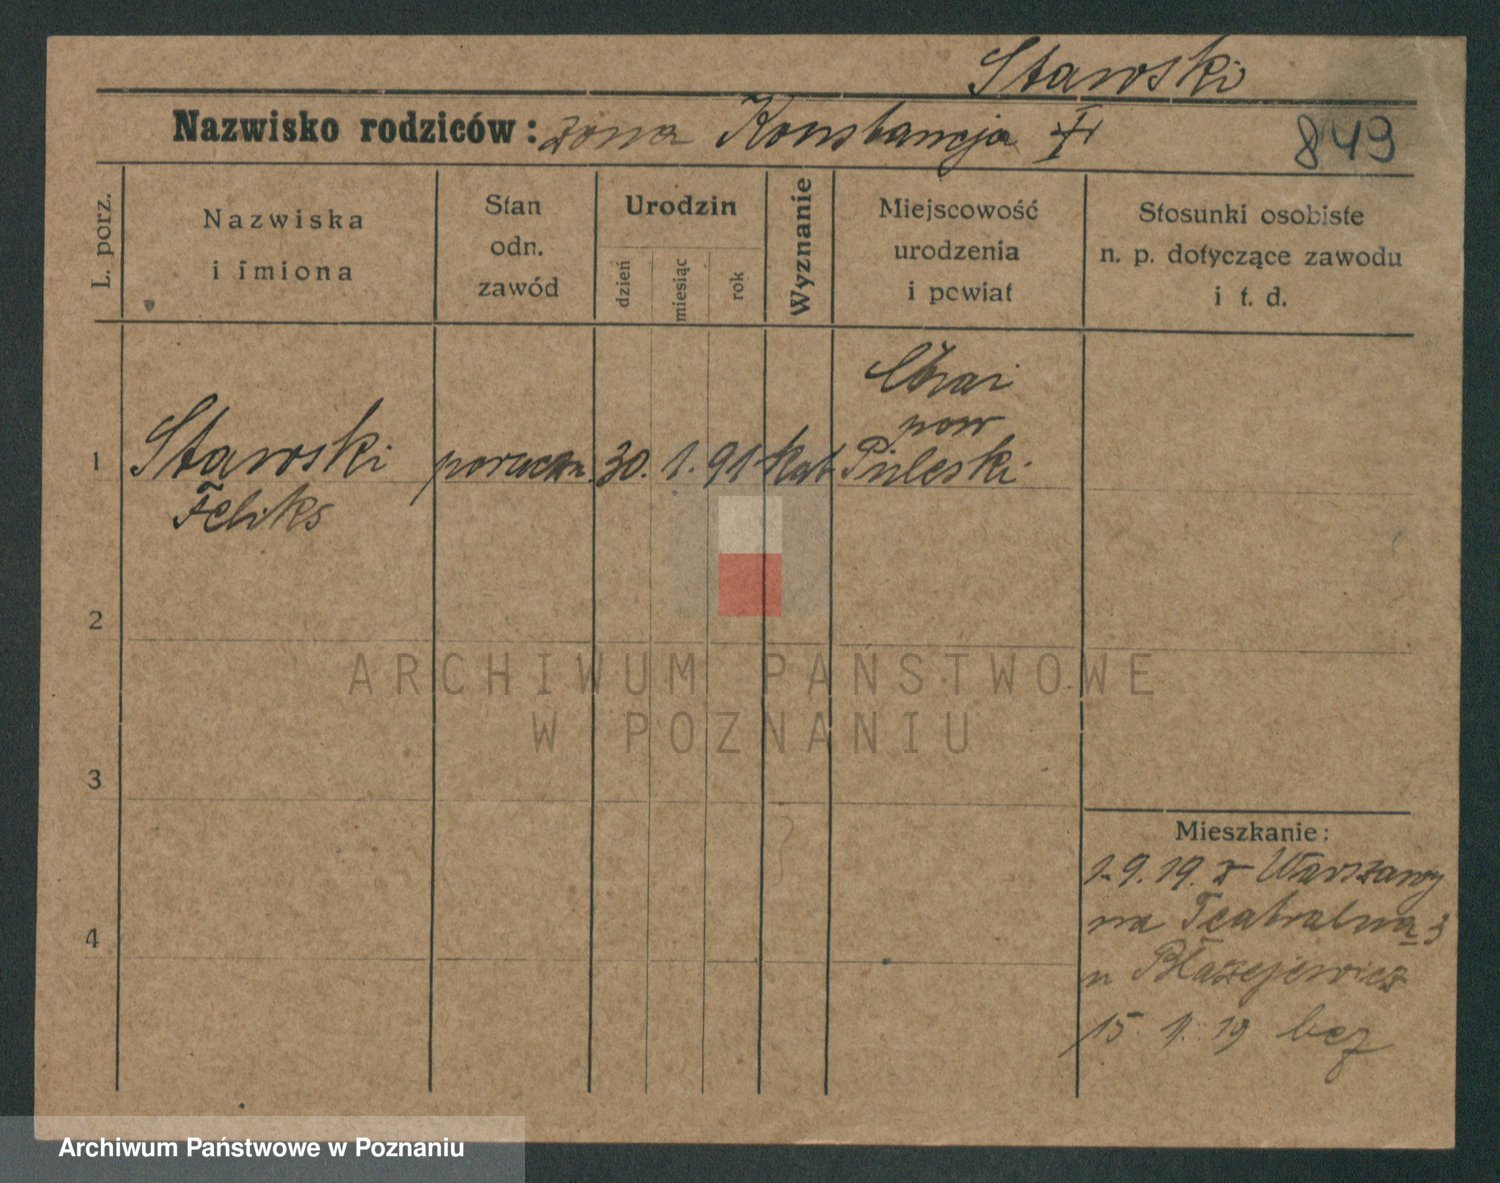 Stawski
Nazwisko rodziców: żona Konstancja
849
L. porz.
Nazwiska
i imiona
Stan
odn.
zawód
Urodzin
dzień
miesiąc
rok
Wyznanie
Miejscowość
urodzenia
i powiat
Stosunki osobiste
n. p. dotyczące zawodu
i t. d.
1
Stawski
Feliks
poruczn.
30. 1. 91
kat
pow
2
3
4
ARCHIWUM PAŃSTWOWE
W POZNANIU
Mieszkanie:
1.9.19. z Warszawy
na Teatralną 3
u Błażejewicz
Archiwum Państwowe w Poznaniu